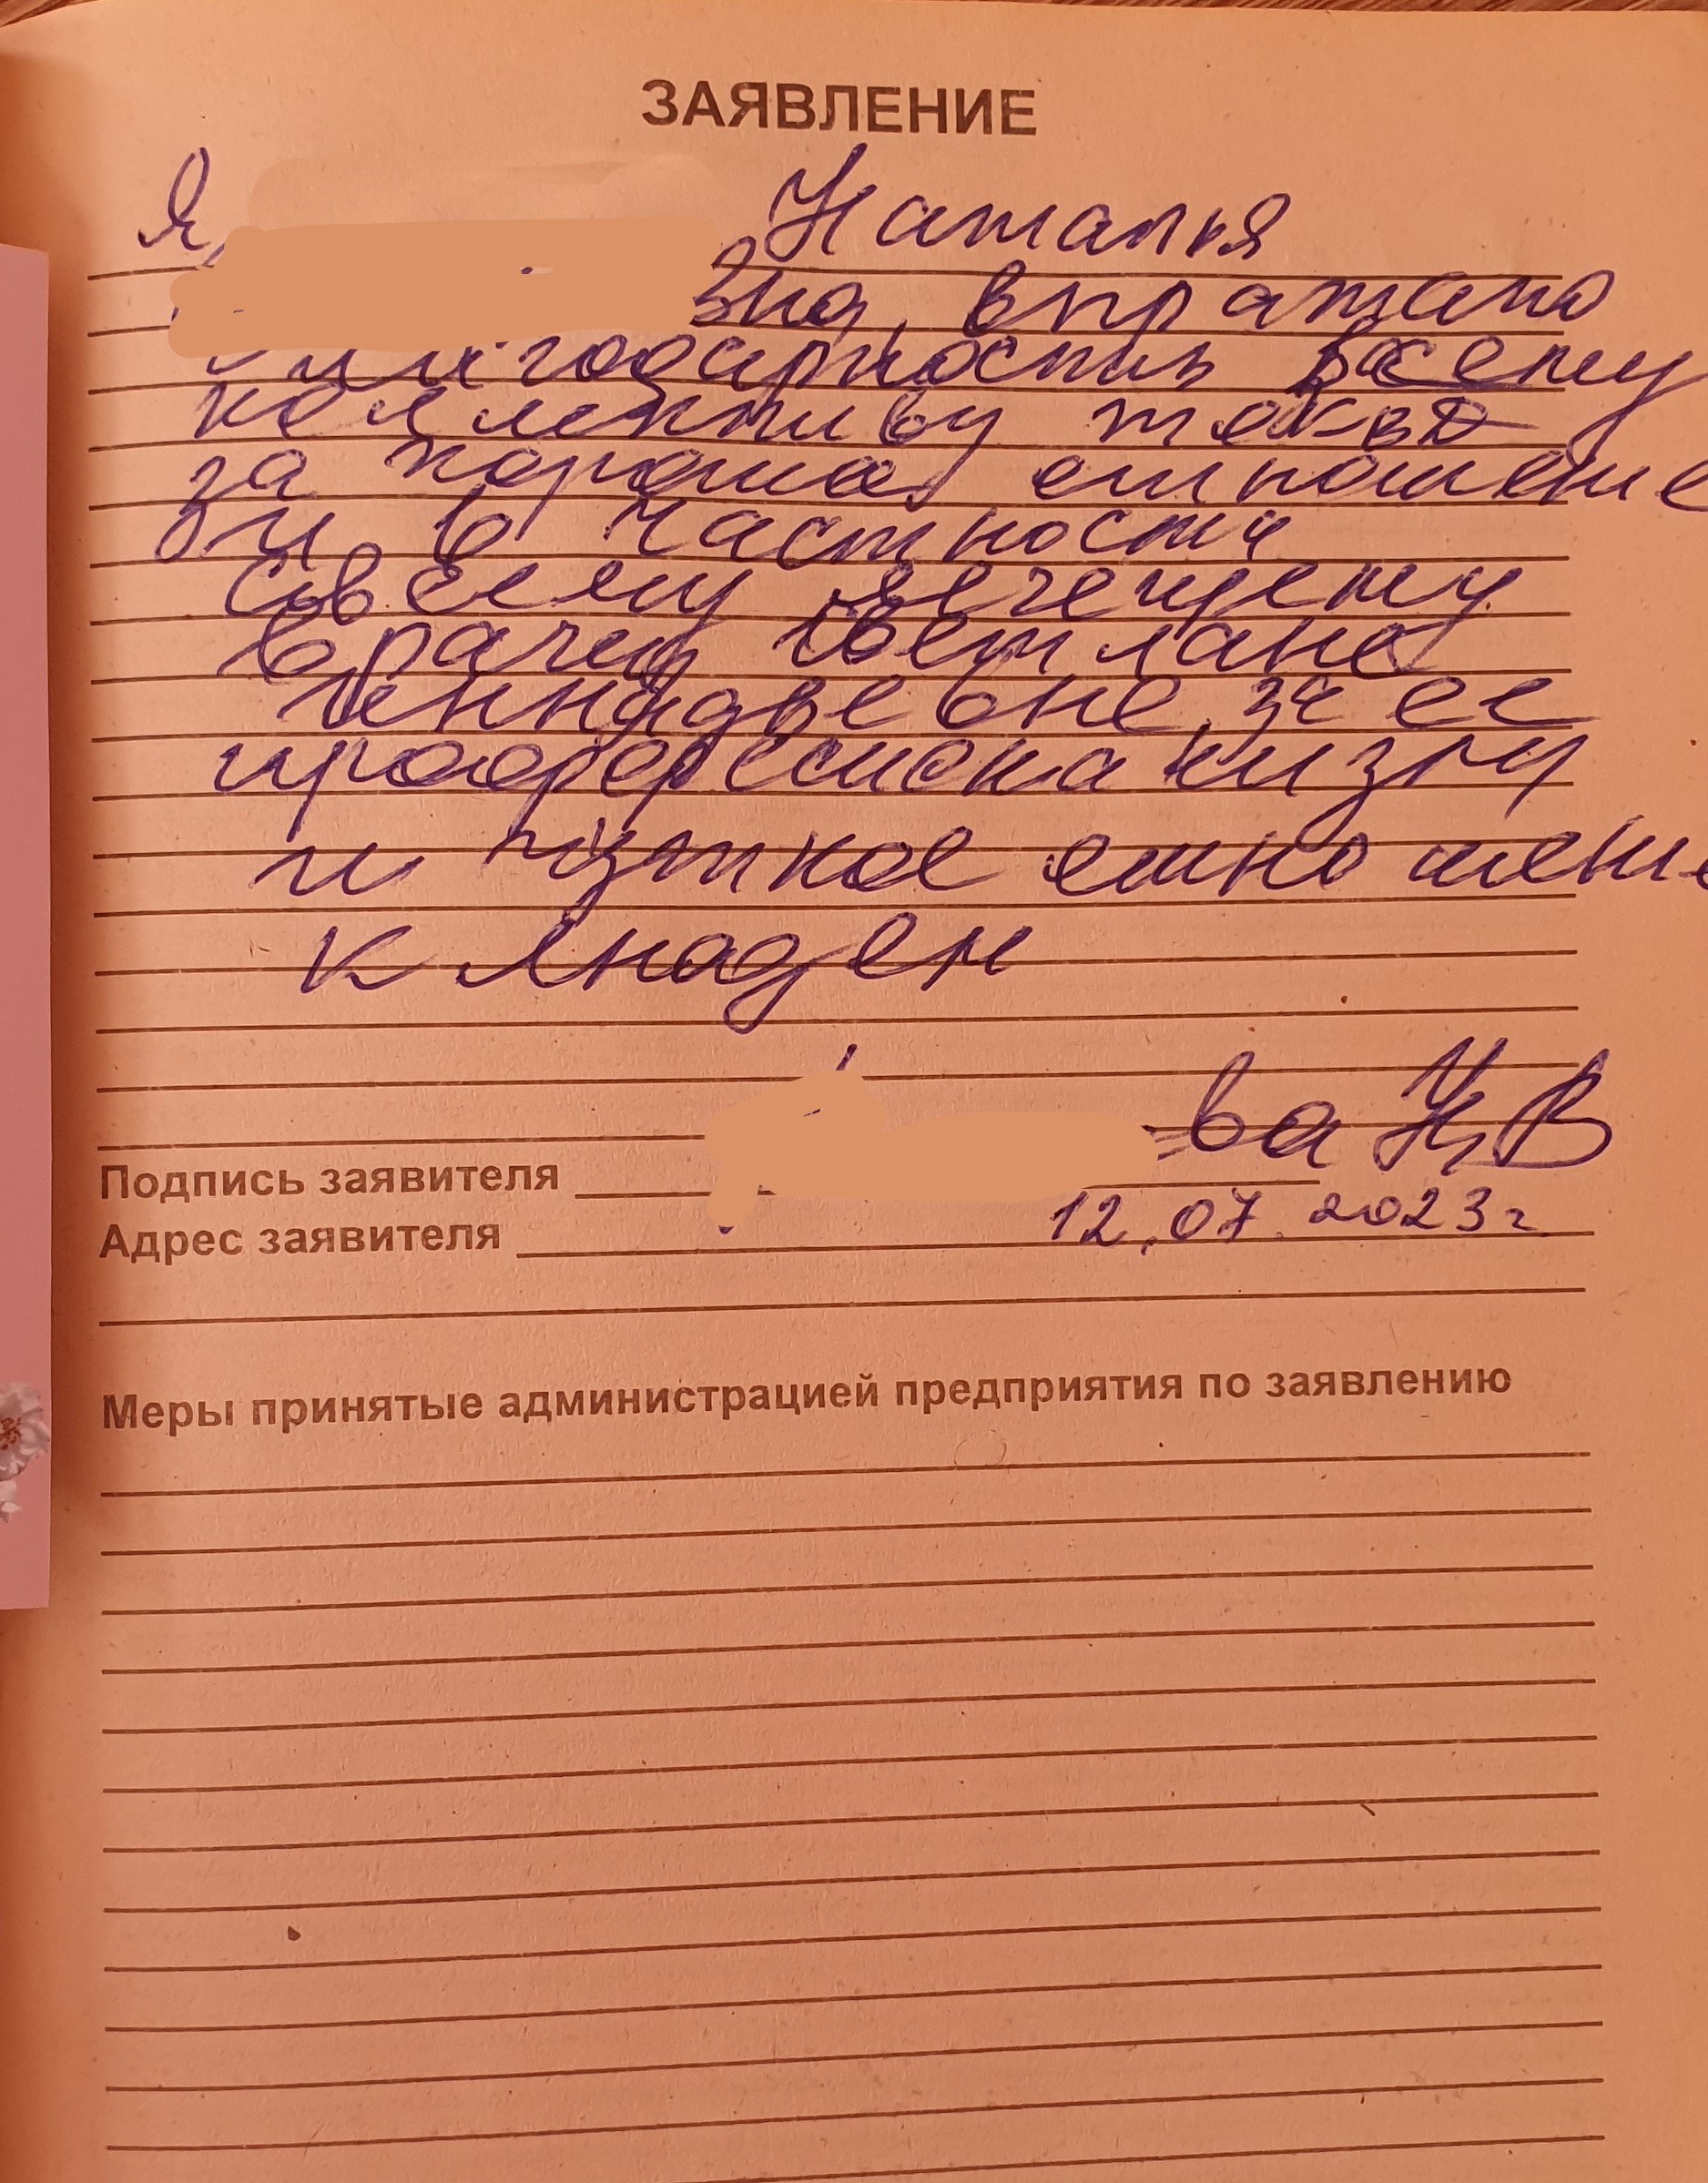 ЗАЯВЛЕНИЕ
Я, Наталья
вна, выражаю
благодарность всему
коллективу
за хорошое отношение
и в частности
своему лечещему
врачу Светлане
Геннадьевне, за ее
профессионализму
и чуткое отношени
к людям
ва Н,В
Подпись заявителя
12.07.2023г
Адрес заявителя
Меры принятые администрацией предприятия по заявлению